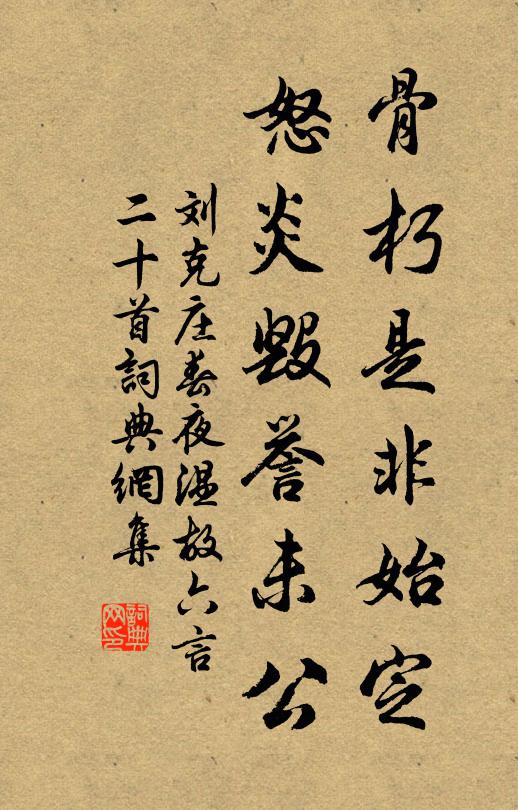 骨朽是非始定
怒炎毀誉未公
刘克庄春夜温故六言
二十首詞典網集
詞典网印